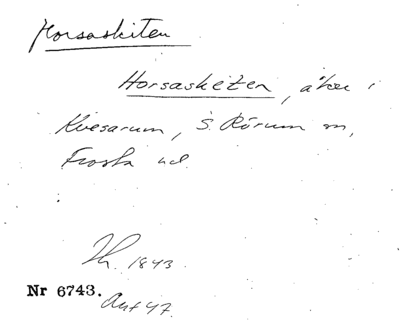 Horsaskiten
Horsasketen, åker i
Kvesarum, S. Rörum sn,
Frosta hd.
1843.
Nr 6743.